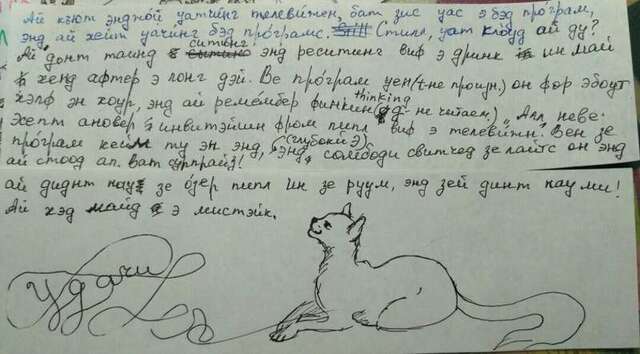 Ай кьют энджой уатчинг телевижен, бат зис уас э бэд програм,
энд ай хейт уачинг бэд програмс. Стилл, уат клуд ай ду?
ситинг
Ай донт таинд э энд реситинг виф э дринк ин май
хенд афтер э лонг дэй. Ве програм уен (t-не произн.) он фор эбоут
thinking
хэлф эн хоур, энд ай ремембер финкин( g - не читаем) „Алл неве
хепт ановер инвитэйшн фром пипл виф э телевижн! Вен зе
(глубокий э)
програм кейм ту эн энд, энд сомбоди свитчед зе лайтс он энд
ай стоод ап. Ват сурпрайз!
ай диднт зе озер пипл ин зе руум, энд зей динт ноу ми!
Ай хэд майд э мистэйк.
Удачи